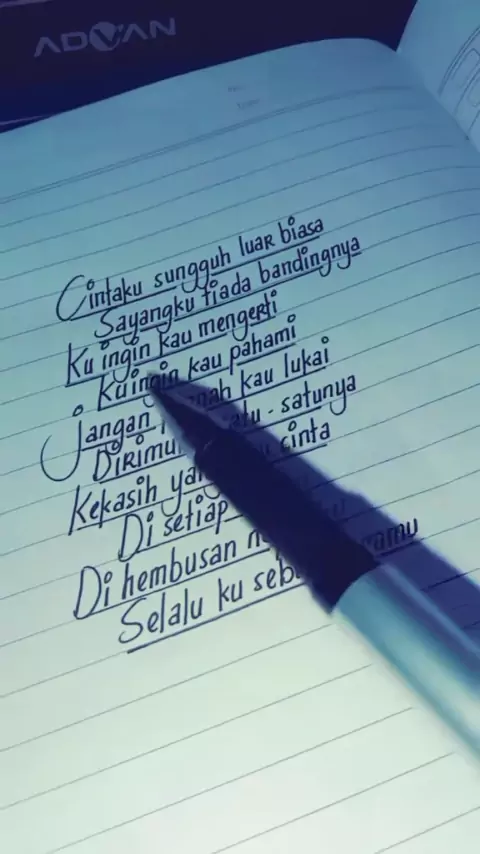 ADVAN
Cintaku sungguh luar biasa
Sayangku tiada bandingnya
Ku ingin kau mengerti
Ku ingin kau pahami
Jangan kau lukai
satunya
Kekasih cinta
Di setiap
Di hembusan
Selalu ku